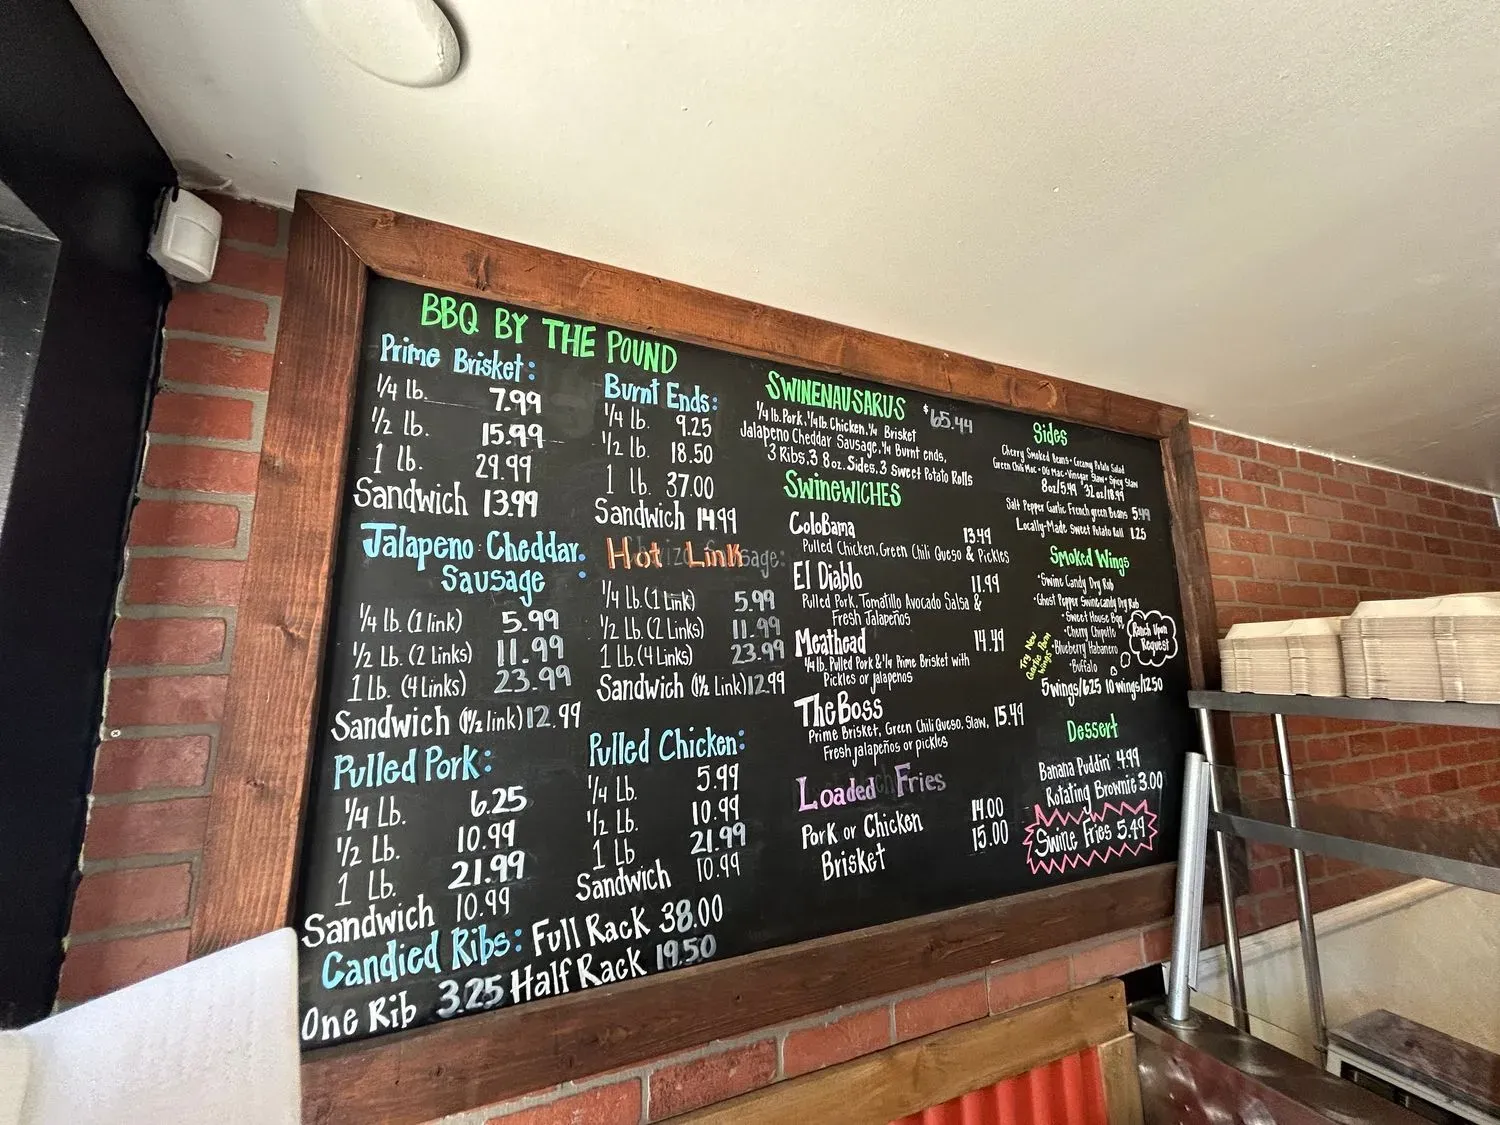 BBQ BY THE POUND
Prime Brisket:
1/4 lb. 7.99
1/2 lb. 15.99
1 lb. 29.99
Sandwich 13.99
Jalapeno Cheddar
Sausage :
1/4 lb. (1 link) 5.99
1/2 Lb. (2 Links) 11.99
1 Lb. (4 Links) 23.99
Sandwich (1 1/2 link) 12.99
Pulled Pork:
1/4 Lb. 6.25
1/2 Lb. 10.99
1 Lb. 21.99
Sandwich 10.99
Candied Ribs: Full Rack 38.00
One Rib 3.25 Half Rack 19.50
Burnt Ends:
1/4 lb. 9.25
1/2 lb. 18.50
1 lb. 37.00
Sandwich 14.99
Hot Link
1/4 lb. (1 Link) 5.99
1/2 Lb. (2 Links) 11.99
1 Lb. (4 Links) 23.99
Sandwich (1 1/2 Link) 12.99
Pulled Chicken:
1/4 Lb. 5.99
1/2 Lb. 10.99
1 Lb 21.99
Sandwich 10.99
SWINENAUSARUS $65.44
1/4 lb. Pork, 1/4 lb. Chicken, 1/4 Brisket
Jalapeno Cheddar Sausage, 1/4 Burnt ends,
3 Ribs, 3 8oz. Sides, 3 Sweet Potato Rolls
SWINEWICHES
ColoBama 13.49
Pulled Chicken, Green Chili Queso & Pickles
El Diablo 11.99
Pulled Pork, Tomatillo Avocado Salsa &
Fresh Jalapeños
Meathead 14.49
1/4 lb. Pulled Pork & 1/4 Prime Brisket with
Pickles or jalapenos
The Boss 15.49
Prime Brisket, Green Chili Queso, Slaw,
Fresh jalapeños or pickles
Loaded Fries
Pork or Chicken 14.00
Brisket 15.00
Sides
Cherry Smoked Beans • Creamy Potato Salad
Green Chili Mac • OG Mac • Vinegar Slaw • Spicy Slaw
8oz/5.49 32oz/18.99
Salt Pepper Garlic French green Beans 5.49
Locally-Made Sweet Potato Roll 1.25
Smoked Wings
• Swine Candy Dry Rub
• Ghost Pepper Swine candy Dry Rub
• Sweet House BBQ
• Cherry Chipotle
• Blueberry Habanero
• Buffalo
Try New
Garlic Parm
Wings
Ranch Upon
Request
5 wings/6.25 10 wings/12.50
Dessert
Banana Puddin' 4.99
Rotating Brownie 3.00
Swine Fries 5.49